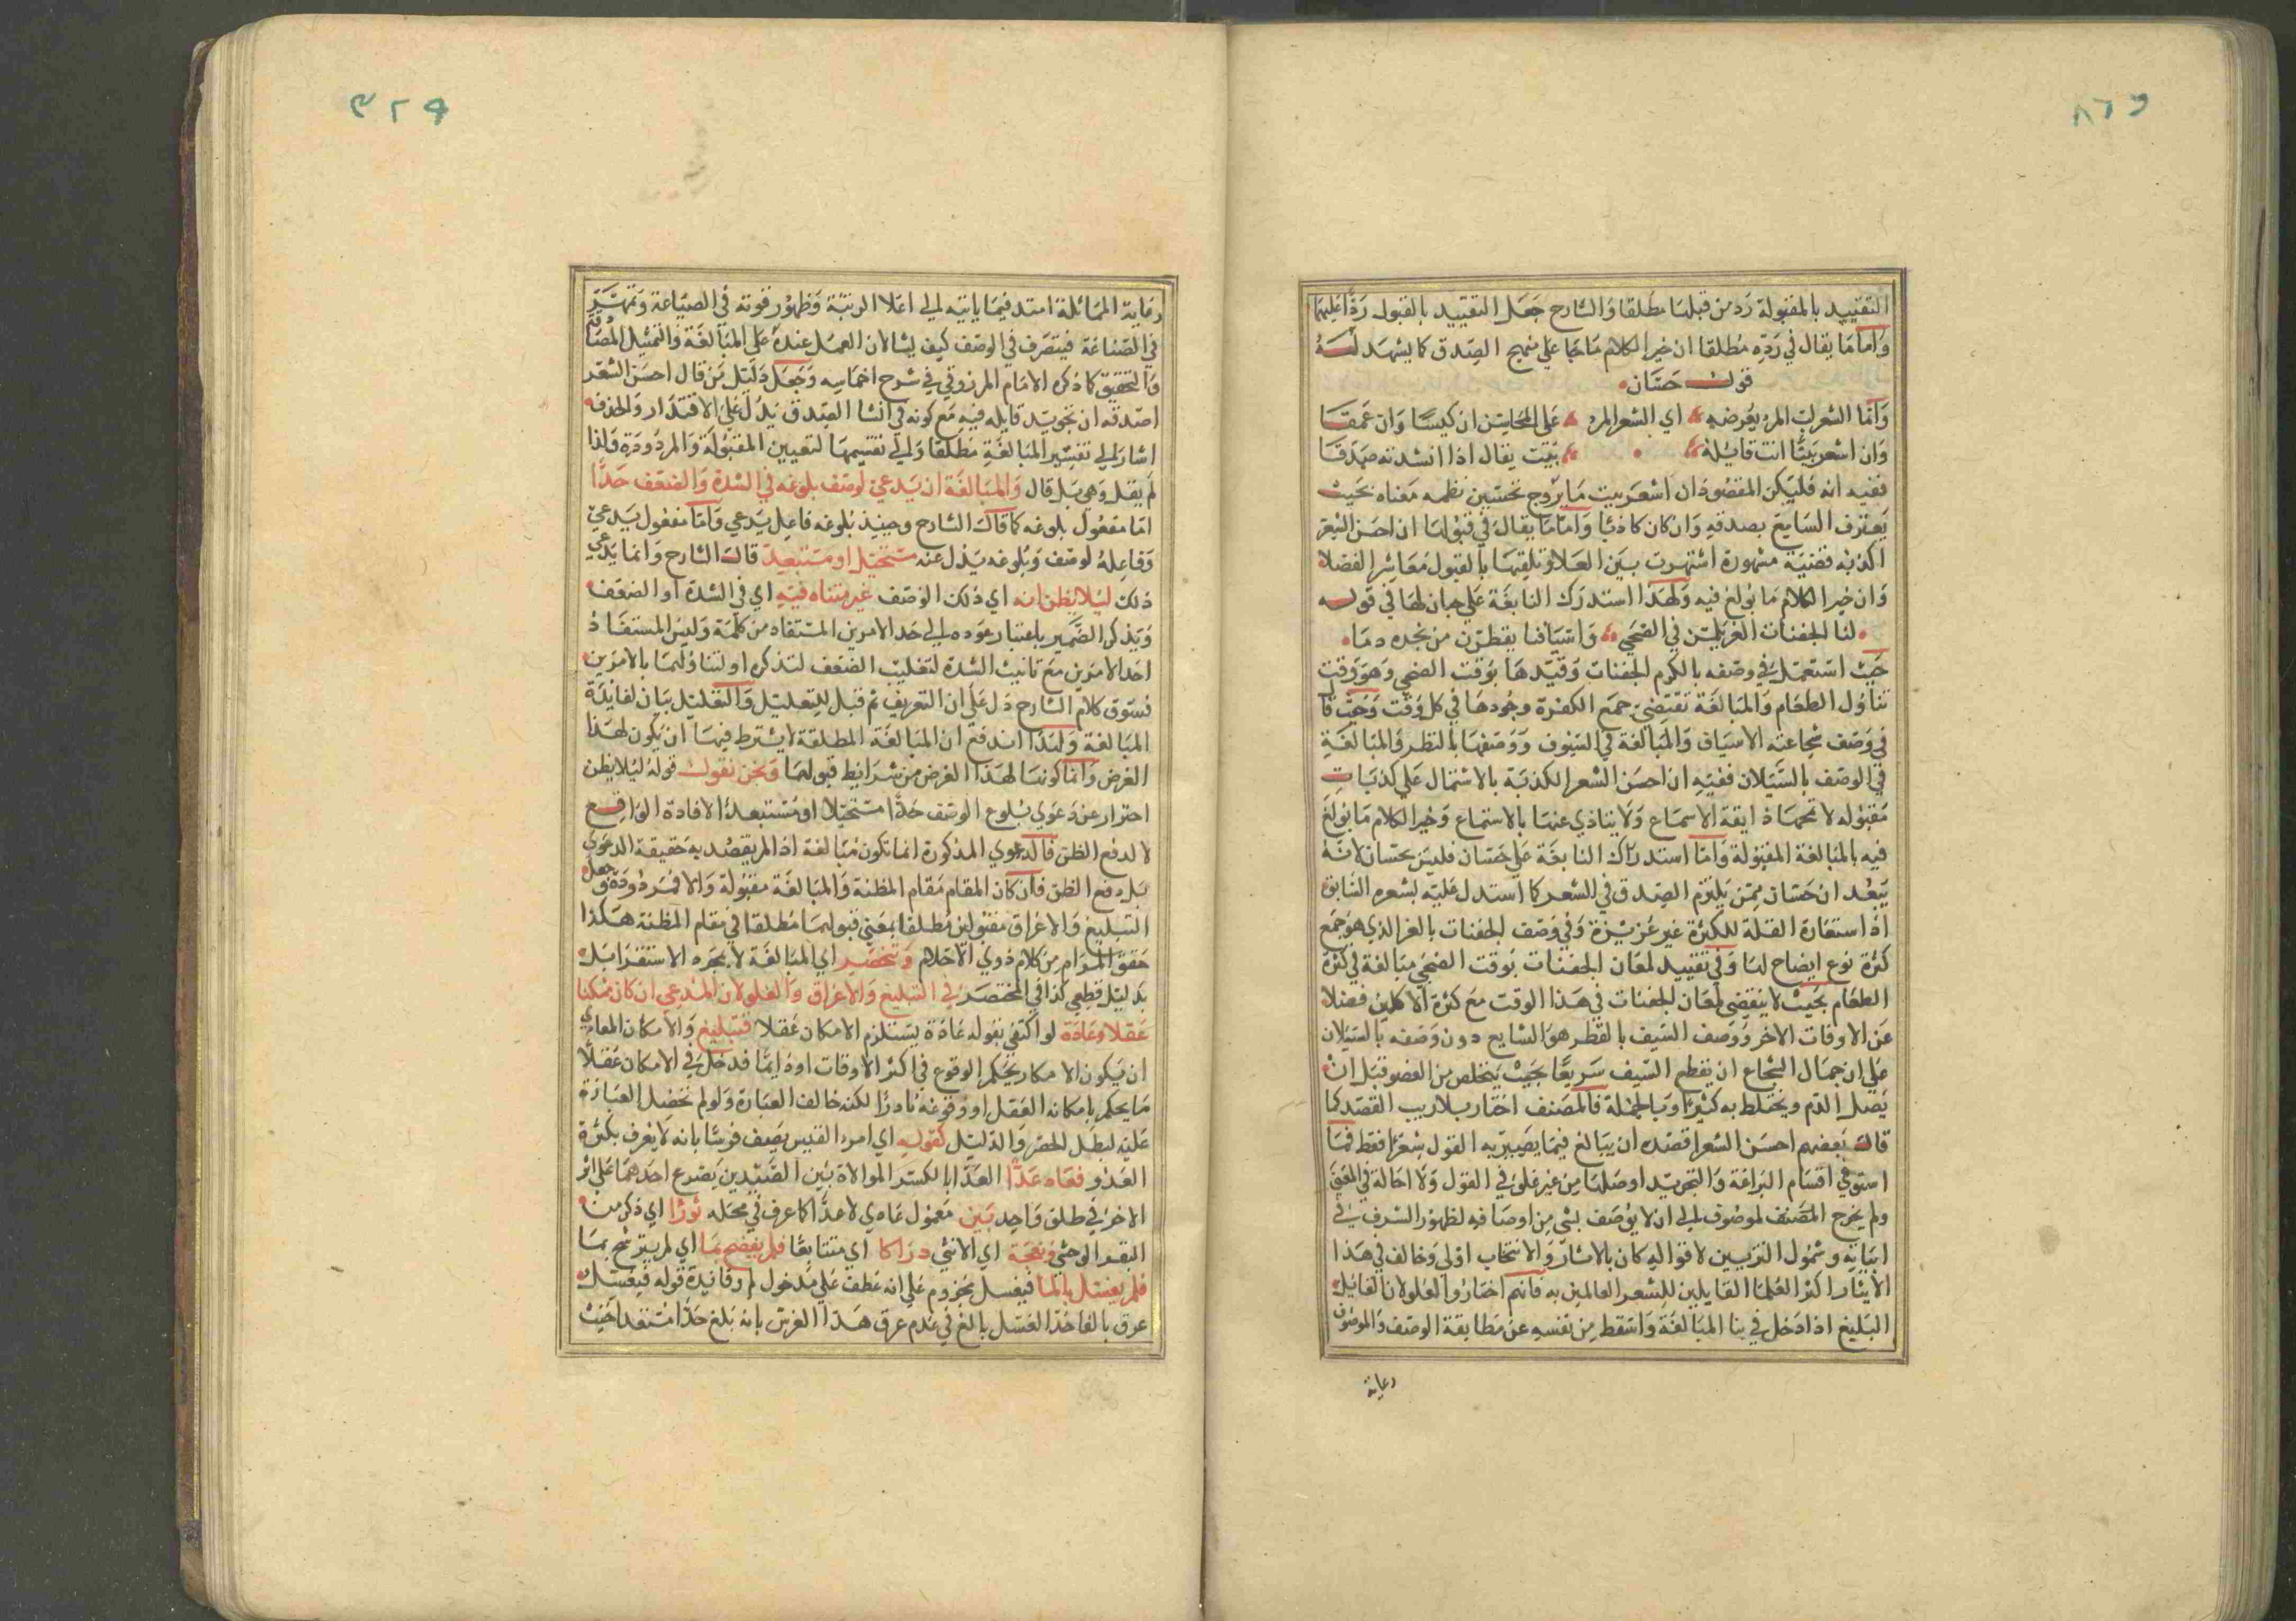 التقييد بالمقبولة رد من قبلها مطلقا والشارح جعل التقييد بالقبول ردا عليهما
واما ما يقال في رده مطلقا ان خير الكلام ما جا على نهج الصدق كما يشهد له
قول حسان
وانما الشعر لب المرء يعرضه اي الشعر المرء على المجالس ان كيسا وان حمقا
وان اشعر بيت انت قائله بيت يقال اذا انشدته صدقا
ففيه انه فليكن المقصود ان اشعر بيت ما يروج تحسين نظمه معناه بحيث
يعترف السامع بصدقه وان كان كاذبا واما ما يقال في قبولها ان احسن الشعر
اكذبه قضية مشهورة اشتهرت بين العلا وتلقتها بالقبول معاشر الفضلا
وان خير الكلام ما بولغ فيه ولهذا استدرك النابغة على حسان لها في قوله
لنا الجفنات الغر يلمعن في الضحى واسيافنا يقطرن من نجدة دما
حيث استعمل في وصفه بالكرم الجفنات وقيدها بوقت الضحى وهو وقت
تناول الطعام والمبالغة تقتضي جمع الكثرة وجودها في كل وقت
في وصف شجاعته الاسياف والمبالغة في السيوف ووصفها بالقطر والمبالغة
في الوصف بالسيلان ففيه ان احسن الشعر اكذبه بالاشتمال على كذبات
مقبوله لا تمجها ذايقة الاسماع ولا يتاذي عنها بالاستماع وخير الكلام ما بولغ
فيه بالمبالغة المقبولة واما استدراك النابغة على حسان فليس بحسان لانه
يبعد ان حسان ممن يلتزم الصدق في الشعر كما استدل عليه لشعره السابق
اذ استعارة القلة للكثرة غير عزيزة وفي وصف الجفنات بالغر الذي هو جمع
كثرة نوع ايضاح لها وفي تقييد لمعان الجفنات بوقت الضحى مبالغة في كثرة
الطعام بحيث لا ينقضي لمعان الجفنات في هذا الوقت مع كثرة الاكلين فضلا
عن الاوقات الاخر ووصف السيف بالقطر هو الشايع دون وصفه بالسيلان
على ان جمال الشجاع ان يقطع السيف سريعا بحيث يتخلص من العضو قبل ان
يصل الدم ويختلط به كثيرا وبالجملة فالمصنف اختار بلا ريب القصد كما
قال بعضهم احسن الشعر اقصده ان يبالغ فيما يصير به القول شعرا فقط فما
استوفى اقسام البراعة والتجويد اوصلها من غير غلو في القول ولا احالة في المعنى
ولم يخرج المصنف لموصوف الى ان لا يوصف بشي من اوصافه لظهور السرف في
ابياته وشمول التزيين لاقواله كان بالايثار والانتخاب اولى وخالف في هذا
الايثار اكثر العلما القايلين للشعر العالمين به فانهم اختاروا الغلو لان القايل
البليغ اذا دخل في بنا المبالغة واسقط من نفسه عن مطابقة الوصف والموصوف
رعاية
رعاية المماثلة امتد فيما ياتيه الى اعلا الرتبة وظهور قوته في الصياغة
في الصناعة فيتصرف في الوصف كيف يشا لان العمل عنده على المبالغة والتمثيل
والتحقيق كما ذكره الامام المرزوقي في شرح وجعل دليل من قال احسن الشعر
اصدقه ان تجويد قايله فيه مع كونه في انشا الصدق يدل على الاقتدار والحذق
اشار الى تفسير المبالغة مطلقا والى تقسيمها لتعيين المقبولة والمردودة ولذا
لم يقل وهي بل قال والمبالغة ان يدعى لوصف بلوغه في الشدة والضعف حدا
اما مفعول بلوغه كما قال الشارح وحينئذ بلوغه فاعل يدعي واما مفعول يدعي
وفاعله لوصف وبلوغه يدل عنه مستحيلا او مستبعدا قال الشارح وانما يدعي
ذلك ليلا يظن انه اي ذلك الوصف غير متناه فيه اي في الشدة او الضعف
وتذكير الضمير باعتبار عوده الى حد الامرين المستفاد من كلمة وليس المستفاد
احد الامرين مع تانيث الشدة لتغليب الضعف لتذكره او لتناولهما بالامرين
فسوق كلام الشارح دل على ان التعريف تم قبل للتعليل والتعليل بيان لفايدة
المبالغة ولهذا اندفع ان المبالغة المطلقة لا يشترط فيها ان يكون لهذا
الغرض وانما كونها لهذا الغرض من شرايط قبولها ونحن نقول قوله ليلا يظن
احتراز عن دعوي بلوغ الوصف حدا مستحيلا او مستبعدا لافادة الواقع
لا لدفع الظن فالدعوي المذكورة انما تكون مبالغة اذا لم يقصد به حقيقة الدعوي
بل دفع الظن فان كان المقام مقام المظنة والمبالغة مقبولة والا فمردودة وجعل
التبليغ والاغراق مقبولين مطلقا بمعنى قبولهما مطلقا في مقام المظنة هكذا
حقق المرام من كلام ذوي الاحلام وتنحصر اي المبالغة لا بمجرد الاستقرا بل
بدليل قطعي كذا في المختصر في التبليغ والاغراق والغلو لان المدعي ان كان ممكنا
عقلا وعادة لو اكتفي بقوله عادة يستلزم الامكان عقلا فتبليغ والامكان العادي
ان يكون الامكان يحكم الوقوع في اكثر الاوقات او دايما فدخل في الامكان عقلا
ما يحكم بامكانه العقل او وقوعه نادرا لكنه خالف العبارة ولو لم تحضل العبارة
عليه لبطل الحصر والدليل كقوله اي امرء القيس يصف فرسا بانه لا يعرف بكثرة
العدو فعاد عدا العدا بالكسر الموالاة بين الصيدين يصرع احدهما على اثر
الاخر في طلق واحد بين معمول عادي لا عدا كما عرف في محله ثورا اي ذكر من
البقر الوحشي ونعجة اي الانثى دراكا اي متتابعا فلم ينضح بما اي لم يترشح بما
فلم يغسل بالما فيغسل مجزوم على انه عطف على مدخول لم وفائدة قوله فيغسل
عرق بالفا خذ الغسل بالغ في عدم عرق هذا الفرس بانه بلغ حدا مستبعدا حيث